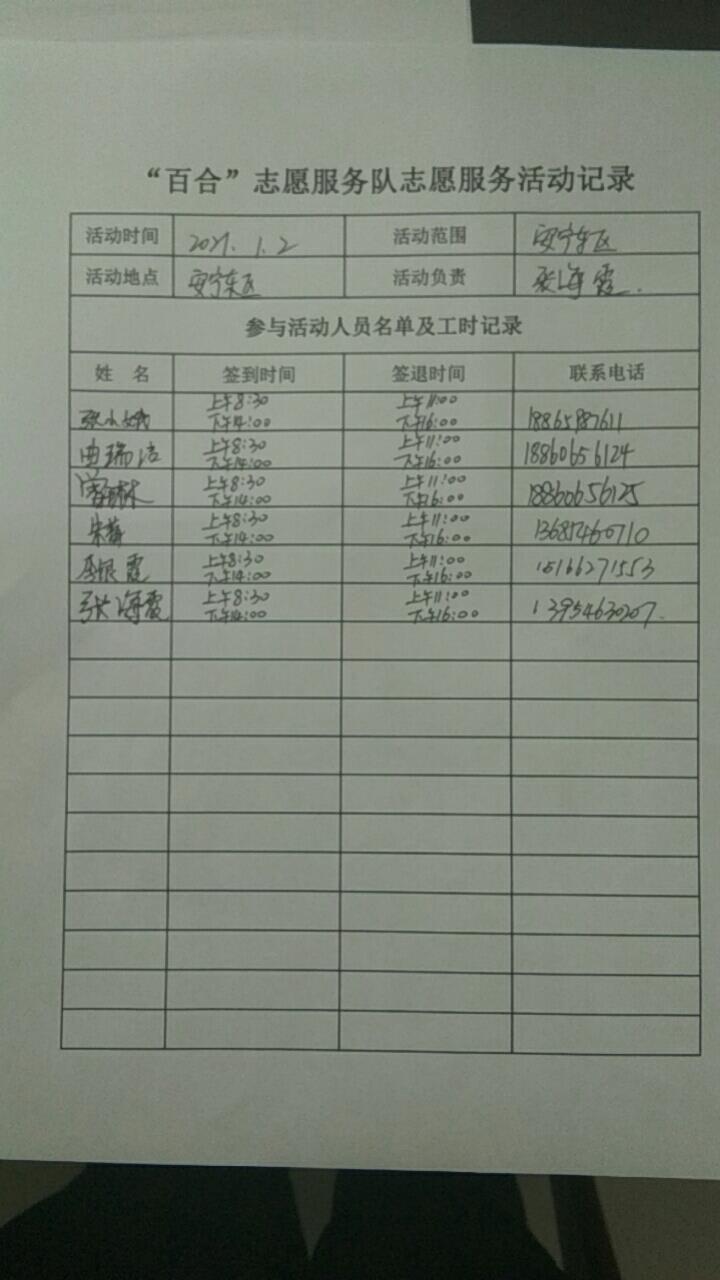 “百合”志愿服务队志愿服务活动记录
活动时间 2021.1.2 活动范围 安宁东区
活动地点 安宁东区 活动负责 张海霞.
参与活动人员名单及工时记录
姓 名 签到时间 签退时间 联系电话
上午8:30 上午11:00
张小娥 下午14:00 下午16:00 18865987611
上午8:30 上午11:00
曲瑞洁 下午14:00 下午16:00 18860656124
上午8:30 上午11:00
下午14:00 下午16:00 18860656125
上午8:30 上午11:00
朱梅 下午14:00 下午16:00 13685460710
上午8:30 上午11:00
李银霞 下午14:00 下午16:00 15166271553
上午8:30 上午11:00
张海霞 下午14:00 下午16:00 13954630207.